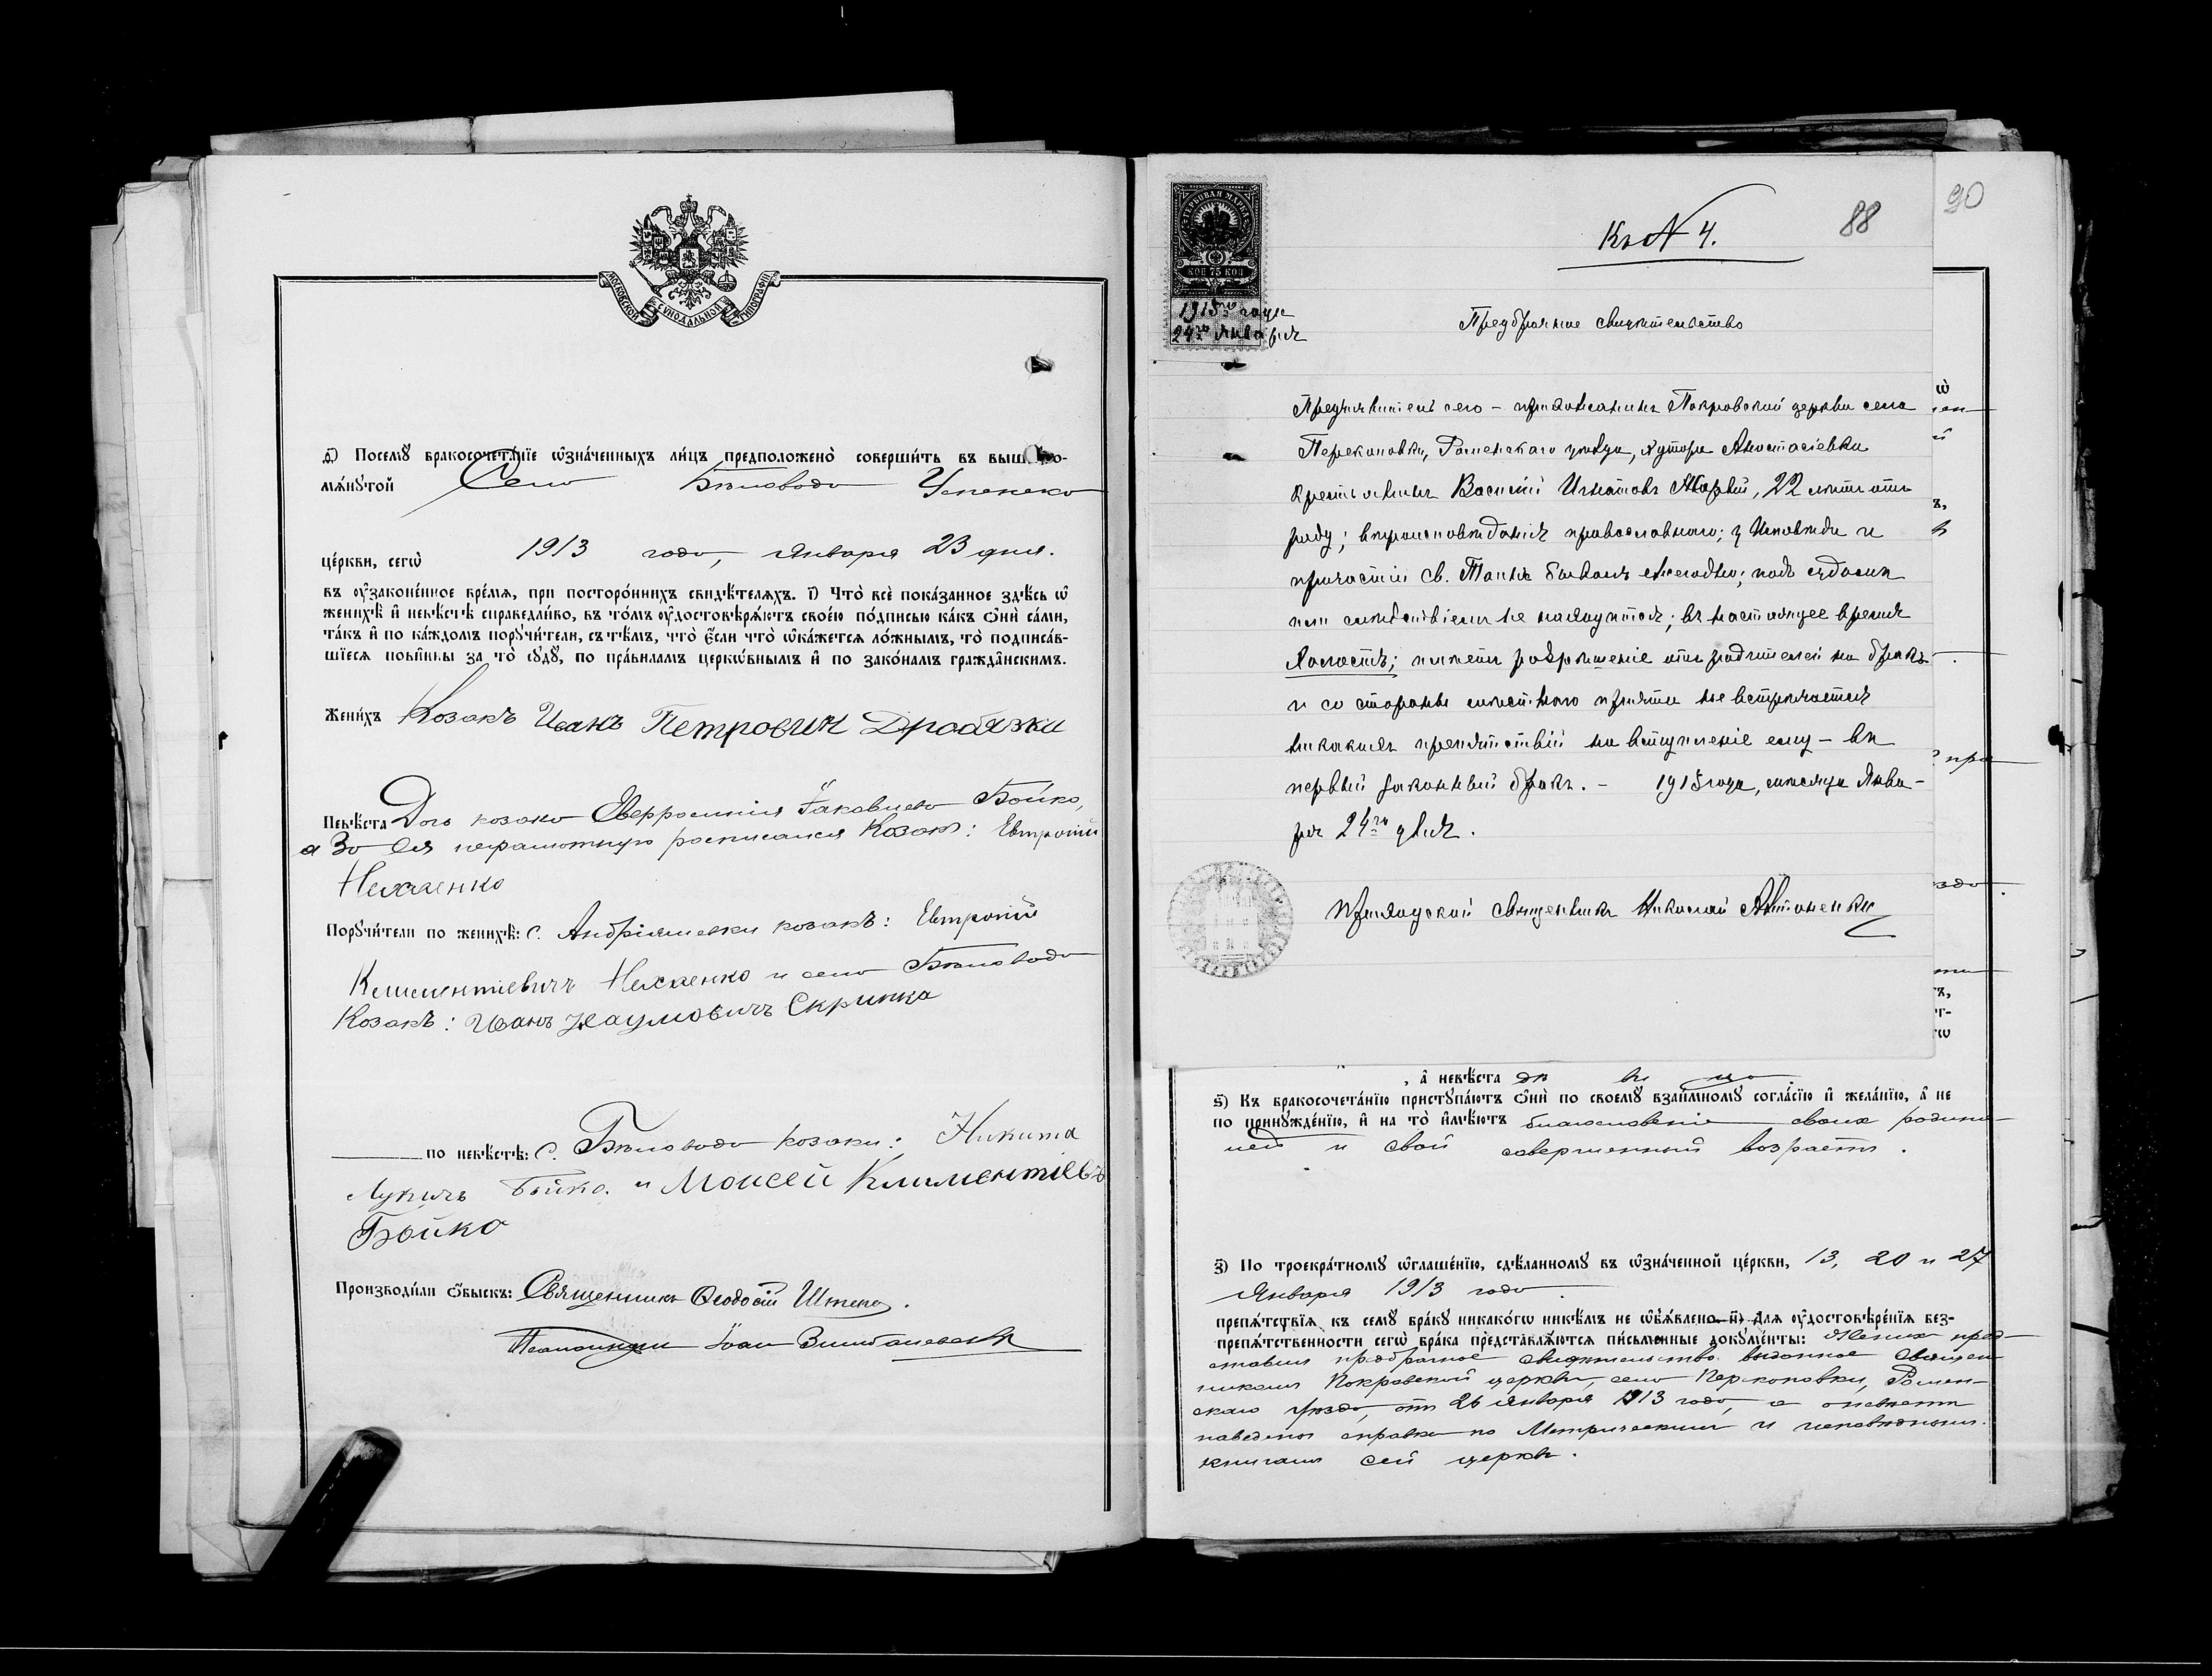 МОСКОВСКОЙ СѴНОДАЛЬНОЙ ТИПОГРАФІИ
Посемꙋ̀ бракосочета́нїе ѡ҆зна́ченныхъ ли́цъ предположено̀ соверши́ть въ
мѧ́нꙋтой Село Бѣловодъ Успенско
це́ркви, сегѡ̀ 1913 года, Января 23 дня.
въ ᲂу҆зако́ненное вре́мѧ, при посторо́ннихъ свидѣ́телѧхъ. і҃) Что̀ всѐ пока́занное здѣ́сь ѡ҆
женихѣ̀ и҆ невѣ́стѣ справедли́во, въ то́мъ ᲂу҆достовѣрѧ́ютъ свое́ю по́дписью ка́къ ѻ҆нѝ са́ми,
та́къ и҆ по ка́ждомъ порꙋчи́тели, съ тѣ́мъ, что̀ є҆́сли что̀ ѡ҆ка́жетсѧ ло́жнымъ, то̀ подписа́в-
шїесѧ пови́нны за то̀ сꙋдꙋ̀, по пра́виламъ церкѡ́внымъ и҆ по зако́намъ гражда̑нскимъ.
Жени́хъ Козакъ Иванъ Петровичъ Дробязки
Невѣ́ста Дочь козака Іаковлева Бойко,
а За Ея неграмотную росписался Козакъ: Евтропій
Нелженко
Порꙋчи́тели по женихѣ̀: с. Андріяшевки козакъ: Евтропій
Климентіевичъ Нелженко и села Бѣловода
Козакъ: Иванъ Наумовичъ Скрипка
по невѣ́стѣ: с. Бѣловода козаки: Никита
Лукичъ Бойко. и Моисей Климентіевъ
Бойко
Производи́ли ѻ҆́быскъ: Священникъ Ѳеодосій
Псаломщикъ Іоан
ГЕРБОВАЯ МАРКА
КОП 75 КОП
1915го года
24го Января
Къ № 4.
88
90
Предбрачное свидѣтельство
Предъявитель сего – прихожанинъ Покровской церкви села
Перекоповки, Роменскаго уѣзда, хутора Анастасіевки
крестьянинъ Василій Игнатовъ 22 лѣтъ отъ
роду; вѣроисповѣданія православнаго; у Исповѣди и
причастія Св. Таинъ бываетъ ежегодно; подъ судомъ и
или слѣдствіемъ не находится; въ настоящее время
Холостъ; имѣетъ разрѣшеніе отъ родителей на бракъ
и со стороны мѣстнаго причта не встрѣчается
никакихъ препятствій на вступленіе ему – въ
первый законный бракъ. – 1915 года, мѣсяца Янва-
ря 24го дня.
Приходской священникъ Николай Антоненко
, а҆ невѣ́ста
ѕ҃) Къ бракосочета́нїю пристꙋпа́ютъ ѻ҆нѝ по своемꙋ̀ взаи́мномꙋ согла́сїю и҆ жела́нїю, а҆ не
по принꙋжде́нїю, и҆ на то̀ и҆мѣ́ютъ благословеніе своихъ родите-
лей и свой совершенный возрастъ.
з҃) По троекра́тномꙋ ѡ҆глаше́нїю, сдѣ́ланномꙋ въ ѡ҆зна́ченной це́ркви, 13, 20 и 27
Января 1913 года
препѧ́тствїѧ къ семꙋ̀ бра́кꙋ никако́гѡ никѣ́мъ не ѡ҆бъѧ́влено. и҃) Для ᲂу҆достовѣре́нїѧ без-
препѧ́тственности сегѡ̀ бра́ка представлѧ́ютсѧ пи́сьменные докꙋме́нты: Женихъ пред-
ставилъ предбрачное свидѣтельство. выданное священ
никомъ Покровской церкви, села Перекоповки, Ромен-
скаго уѣзда, отъ 26 Января 1913 года, а о невѣстѣ
наведена справка по Метрическимъ и исповѣднымъ.
книгамъ сей церкви.